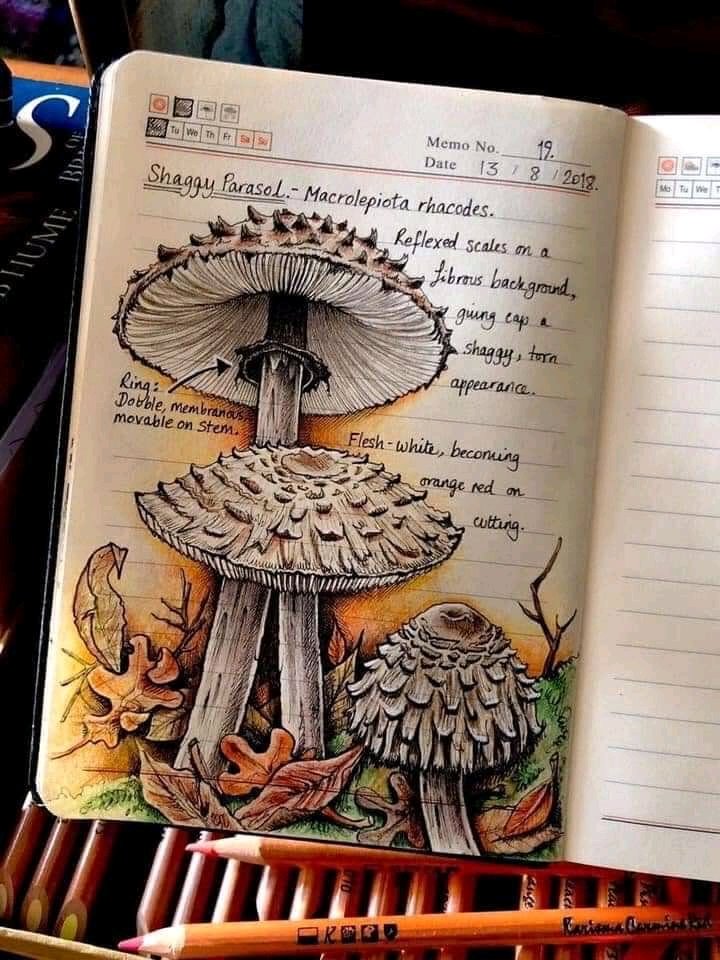 Tu We Th Fr Sa Su
Memo No. 19.
Date 13 / 8 / 2018.
Mo Tu We
Shaggy Parasol. - Macrolepiota rhacodes.
Reflexed scales on a
fibrous background,
giving cap a
shaggy, torn
appearance.
Ring:
Dobble, membranous,
movable on Stem.
Flesh - white, becoming
orange red on
cutting.
S
HUME
Karisma